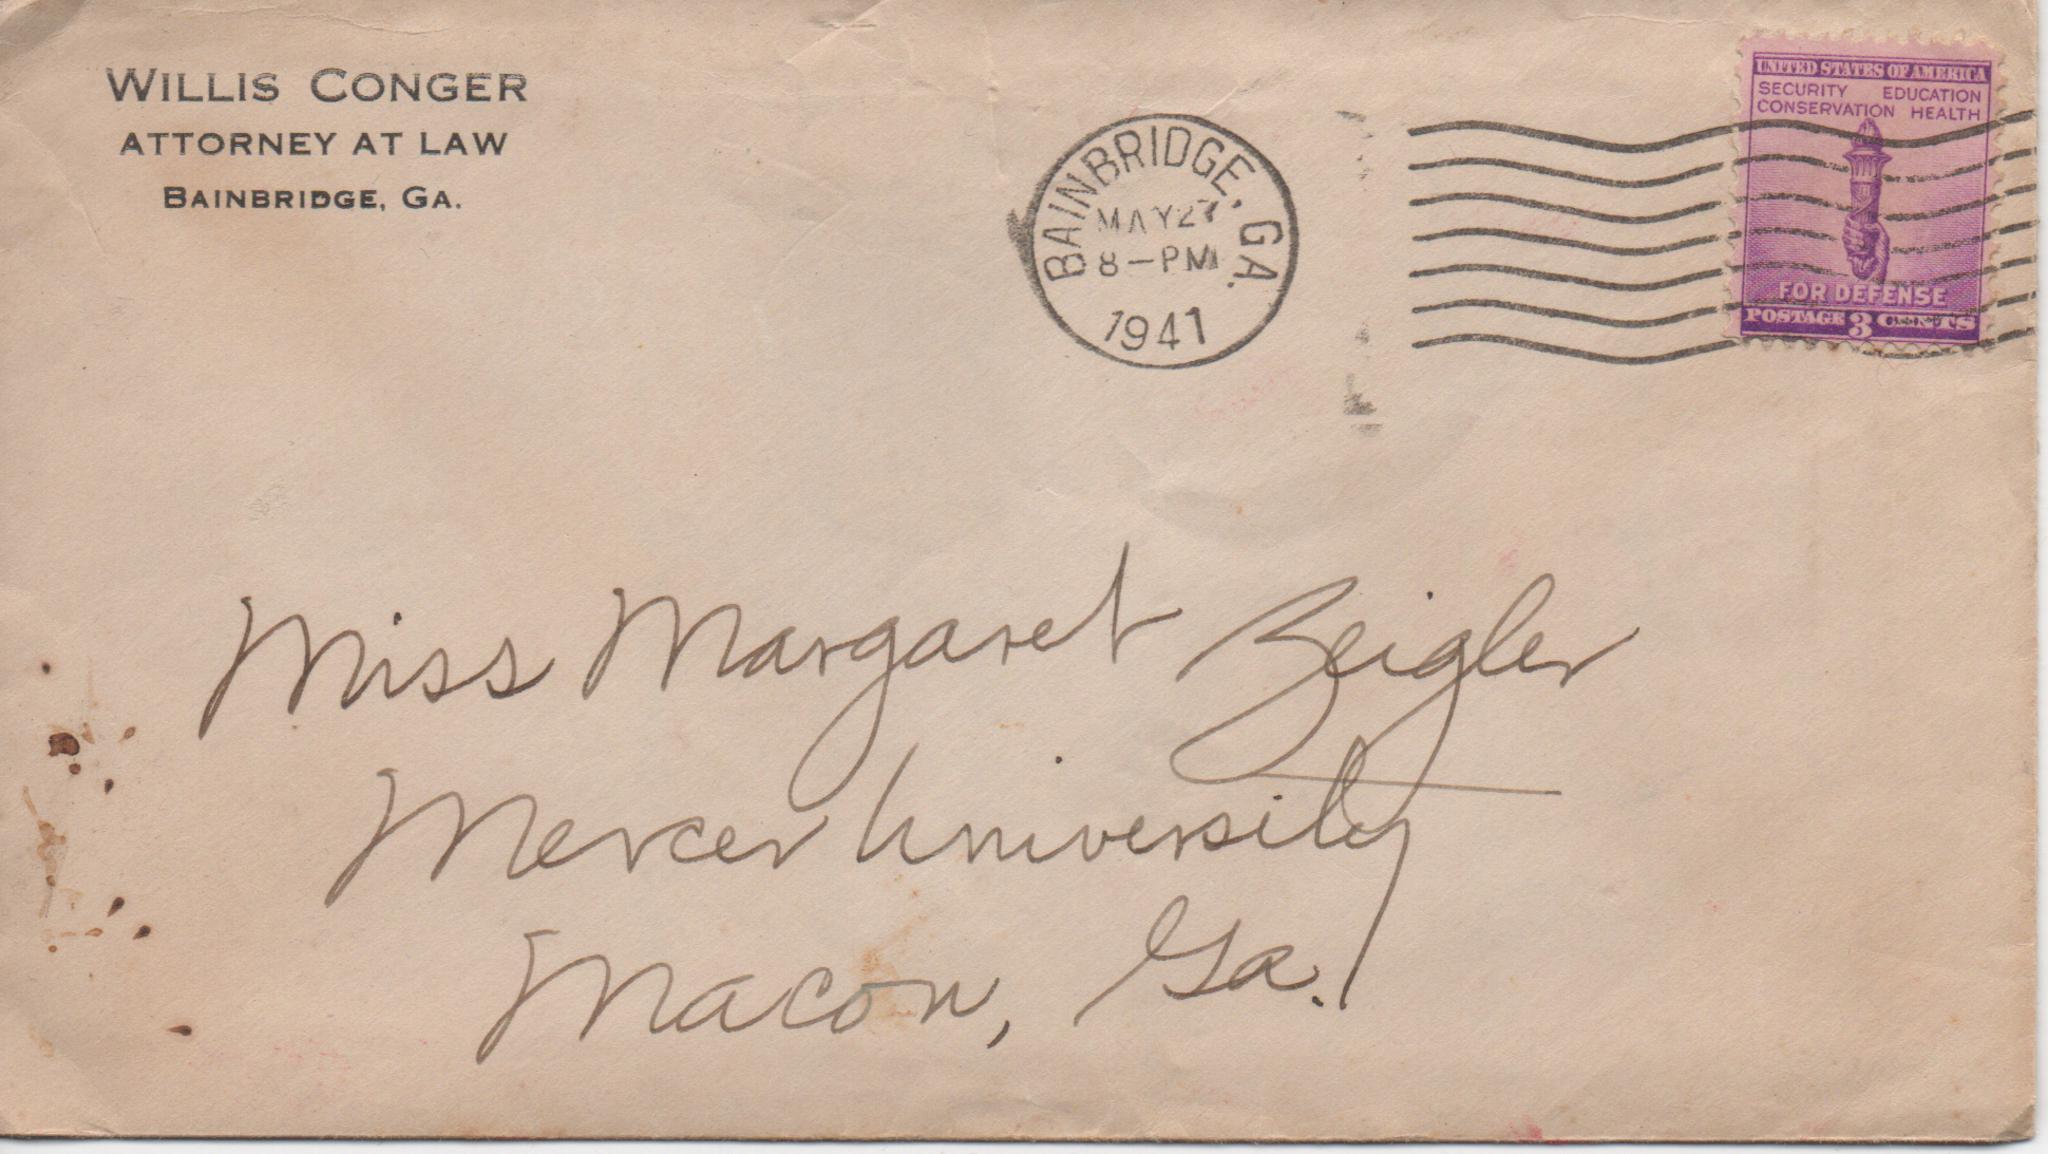 WILLIS CONGER
ATTORNEY AT LAW
BAINBRIDGE, GA.
BAINBRIDGE, GA.
MAY 27
8-PM
1941
UNITED STATES OF AMERICA
SECURITY EDUCATION
CONSERVATION HEALTH
FOR DEFENSE
POSTAGE 3 CENTS
Miss Margaret Zeigler
Mercer University
Macon, Ga.